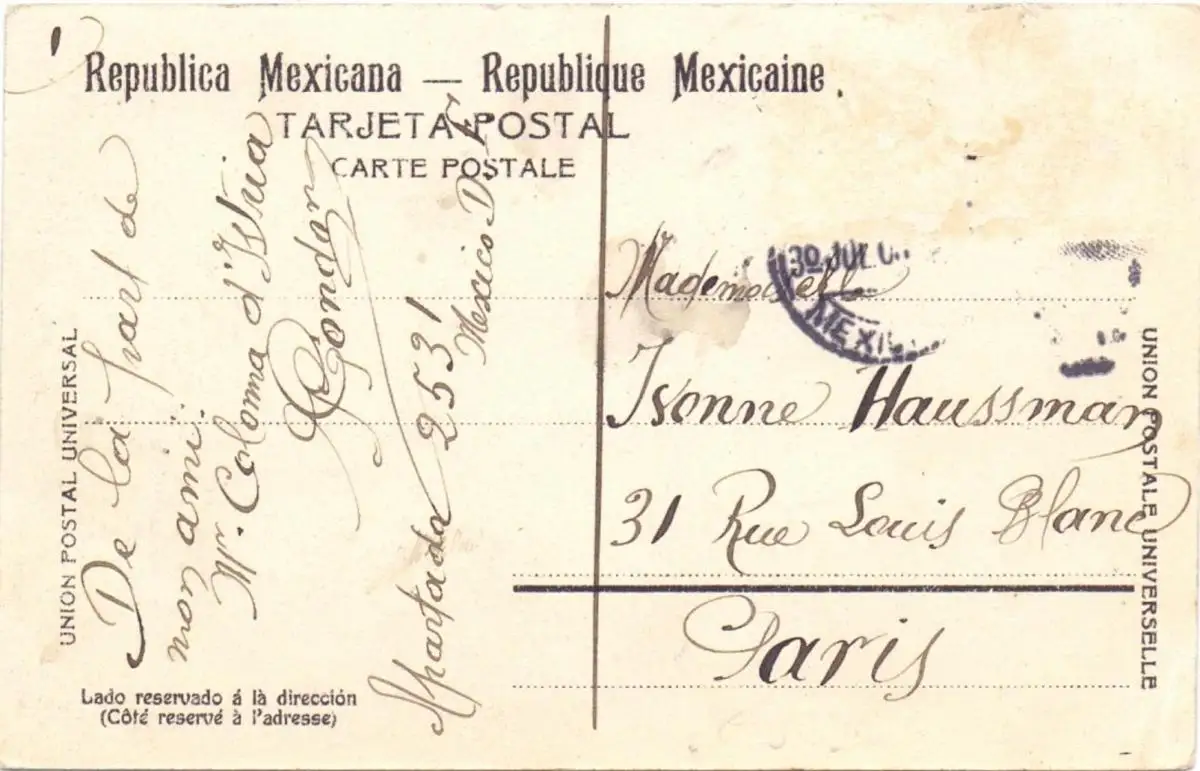 Republica Mexicana — Republique Mexicaine
TARJETA POSTAL
CARTE POSTALE
UNION POSTAL UNIVERSAL
De la part de
mon ami.
Mr. Coloma d'Istria
Gondar
Apartado 2531
Mexico D. F.
30 JUL
MEXI
Mademoiselle
Ivonne Haussman
31 Rue Louis Blanc
Paris
UNION POSTALE UNIVERSELLE
Lado reservado á là dirección
(Côté reservé à l'adresse)